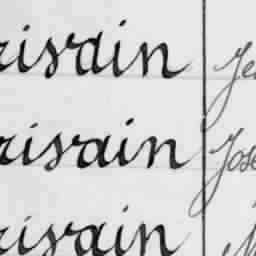 risvain Je
risvain Jose
risvain